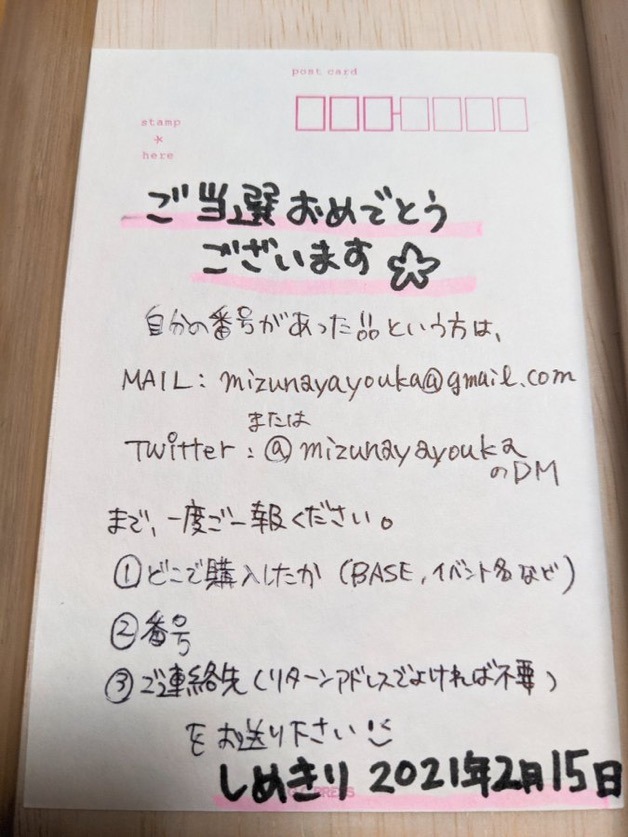 post card
stamp
here
ご当選おめでとう
ございます☆
自分の番号があった!!という方は、
MAIL: mizunayayouka@gmail.com
または
Twitter: @mizunayayouka
のDM
まで、一度ご一報ください。
①どこで購入したか(BASE,イベント名など)
②番号
③ご連絡先(リターンアドレスでよければ不要)
をお送り下さい
しめきり 2021年2月15日